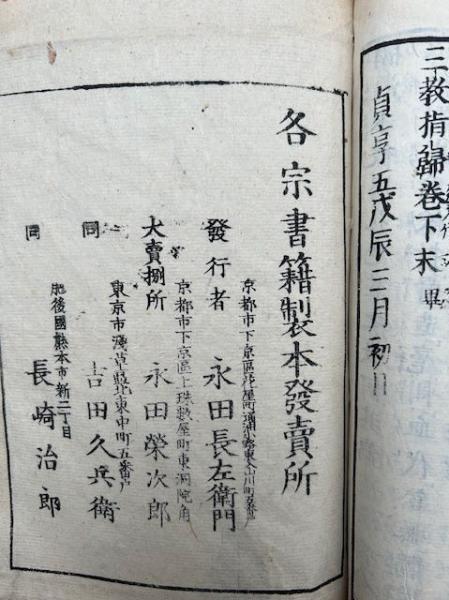 三教指歸卷下末 畢
貞享五戊辰三月初日
各宗書籍製本發賣所
京都市下京區花屋町通
發行者 永田長左衛門
京都市下京區上珠數屋町東洞院角
大賣捌所 永田榮次郎
東京市淺草區北東中町五番戸
同 吉田久兵衛
肥後國熊本市新二丁目
同 長崎治郎